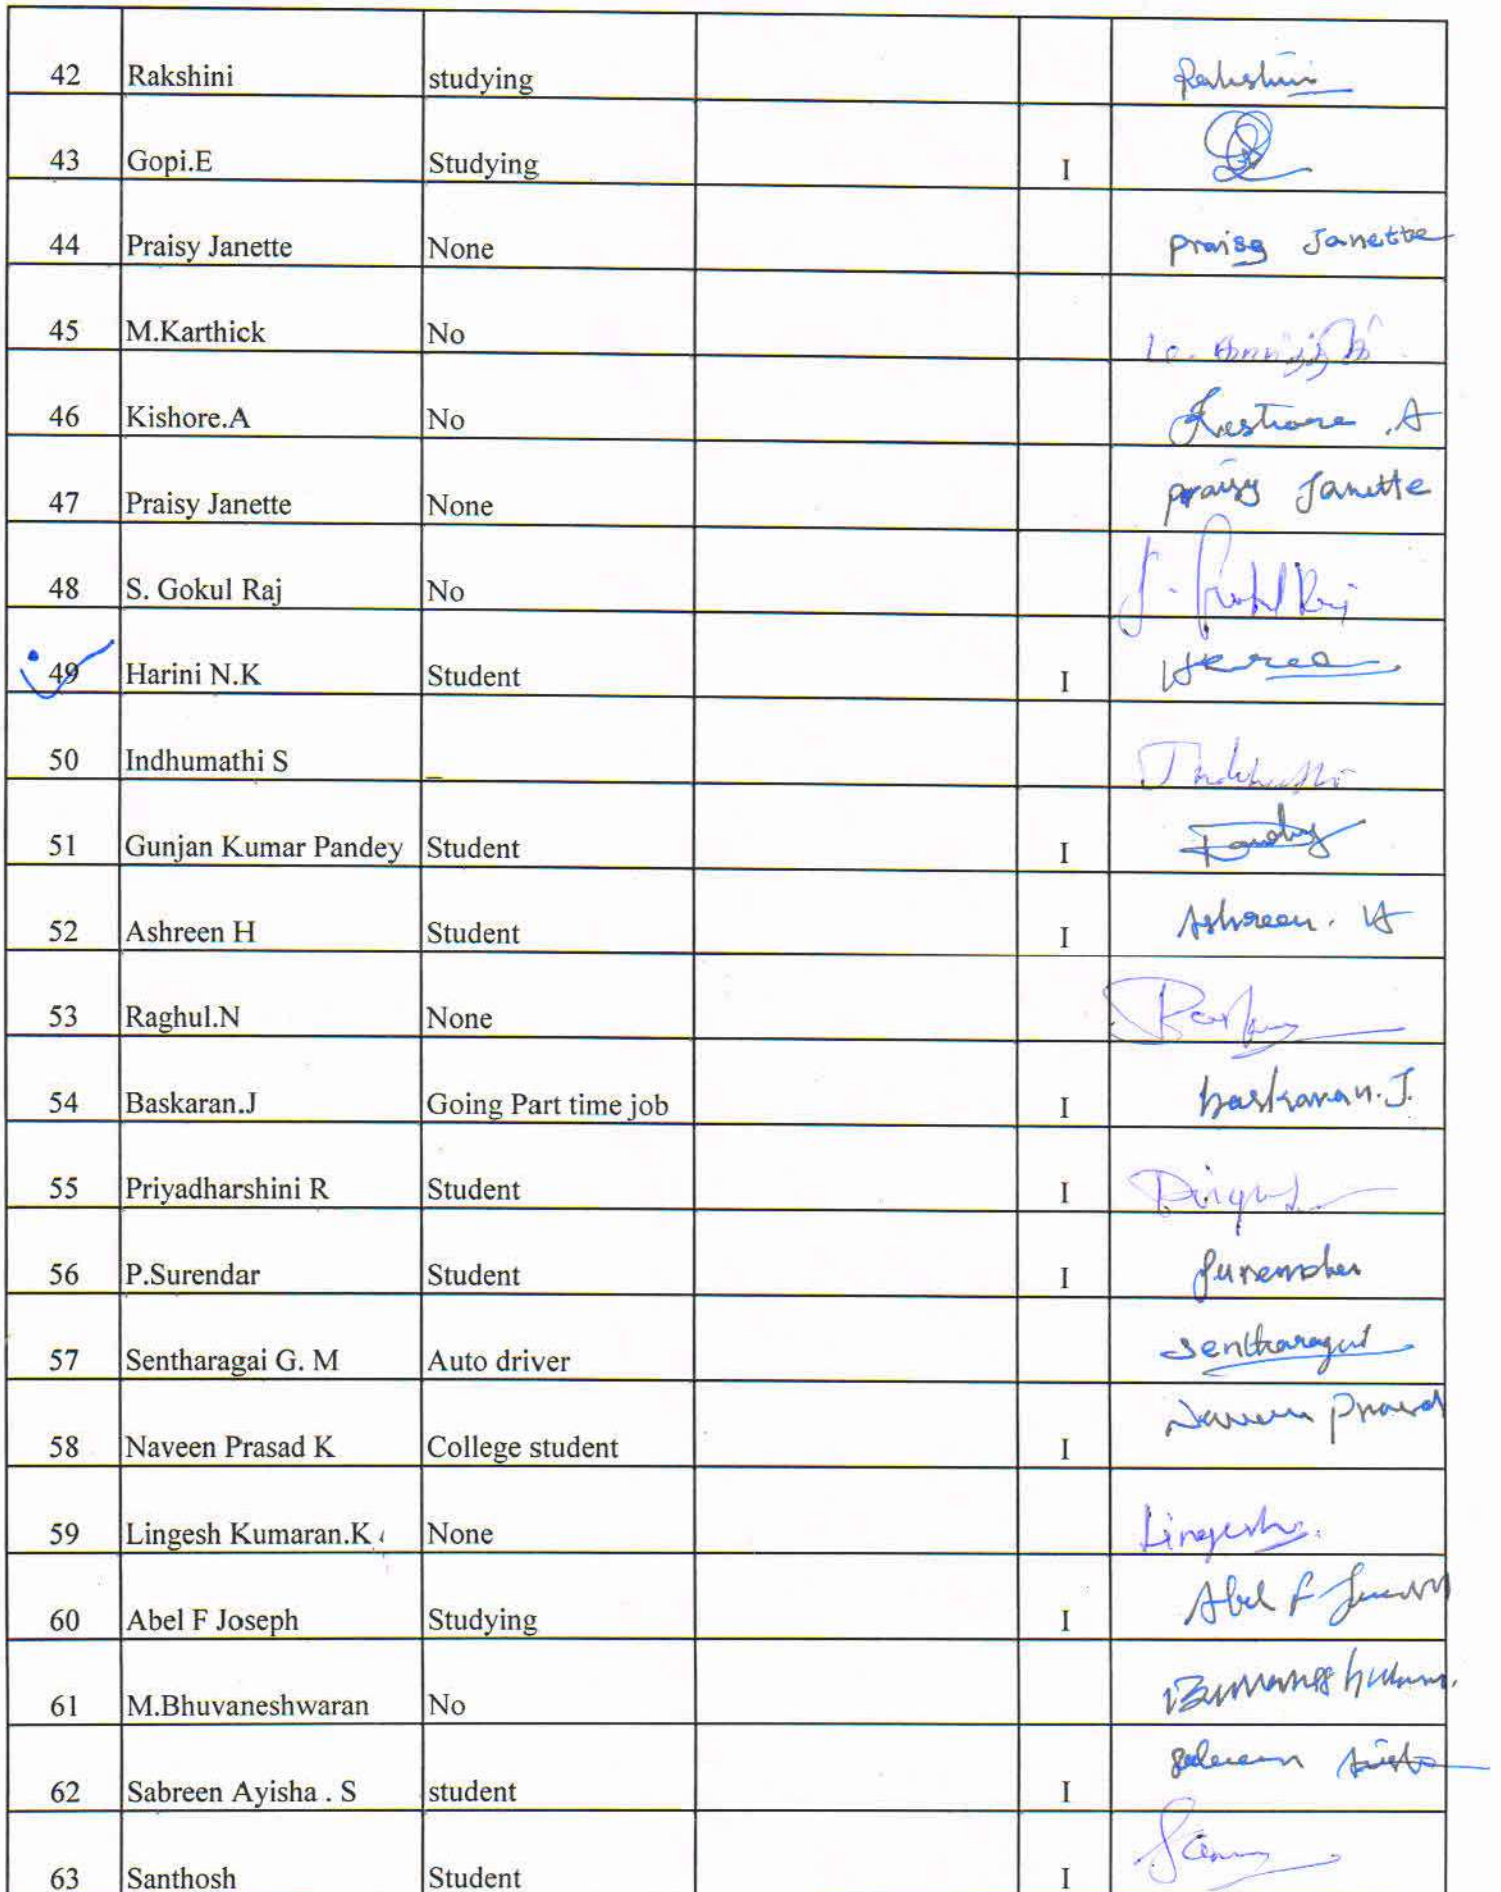 42 Rakshini studying Rakshini
43 Gopi.E Studying I
44 Praisy Janette None Praisy Janette
45 M.Karthick No
46 Kishore.A No Kishore .A
47 Praisy Janette None Praisy Janette
48 S. Gokul Raj No S. Gokul Raj
49 Harini N.K Student I
50 Indhumathi S _
51 Gunjan Kumar Pandey Student I Pandey
52 Ashreen H Student I Ashreen. H
53 Raghul.N None
54 Baskaran.J Going Part time job I baskaran.J.
55 Priyadharshini R Student I
56 P.Surendar Student I Surendar
57 Sentharagai G. M Auto driver Sentharagai
58 Naveen Prasad K College student I Naveen Prasad
59 Lingesh Kumaran.K None Lingesh
60 Abel F Joseph Studying I Abel F Joseph
61 M.Bhuvaneshwaran No
62 Sabreen Ayisha . S student I
63 Santhosh Student I